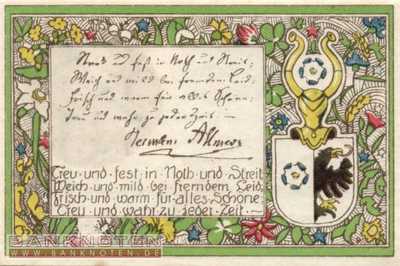 Treu und fest in Noth und Streit;
Weich und mild bei fremdem Leid;
Frisch und warm für alles Schöne;
Treu und wahr zu jeder Zeit. —
Hermann Allmers
Treu und fest in Noth und Streit
Weich und mild bei fremdem Leid
Frisch und warm für alles Schöne
Treu und wahr zu jeder Zeit.
BANKNOTEN
WWW.BANKNOTEN.DE